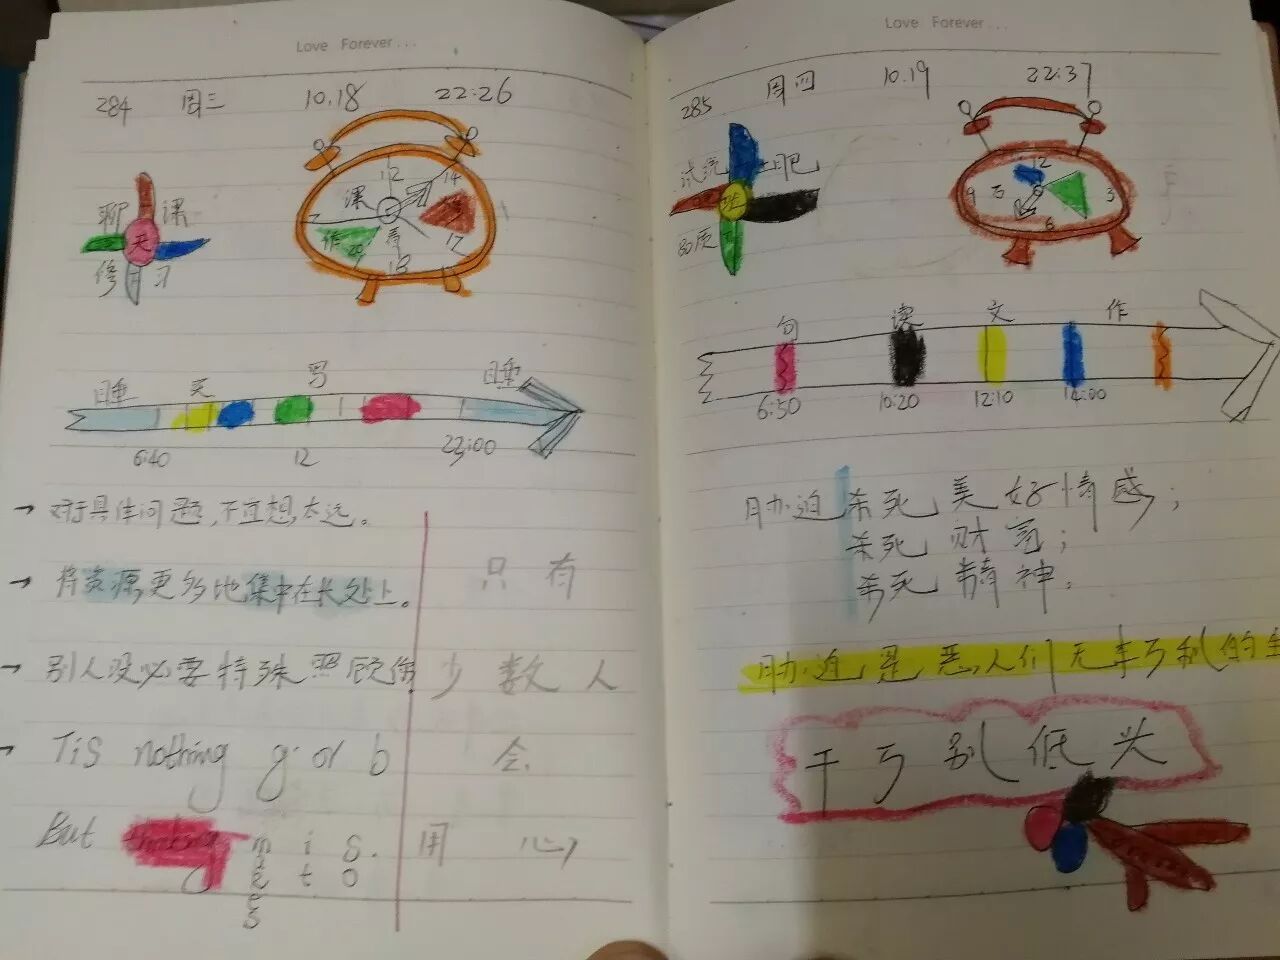 Love Forever...
284 周三 10.18 22:26
聊 课
天
修 习
12
14
课
17
作
20
18
睡 天 写 睡
6:40 12 23:00
→ 对于具体问题,不宜想太远。
→ 将资源更多地集中在长处上。
→ 别人没必要特殊照顾你
→ Tis nothing g or b
But thinking m i s.
t o
只有
少数人
会
用心
Love Forever...
285 周四 10.19 22:37
试
肥
质
12
9 3
6
句 读 文 作
6:50 10:20 12:10 14:00
胁迫 杀死 美好情感;
杀死 财富;
杀死 精神.
胁迫是恶人们
干亏别低头